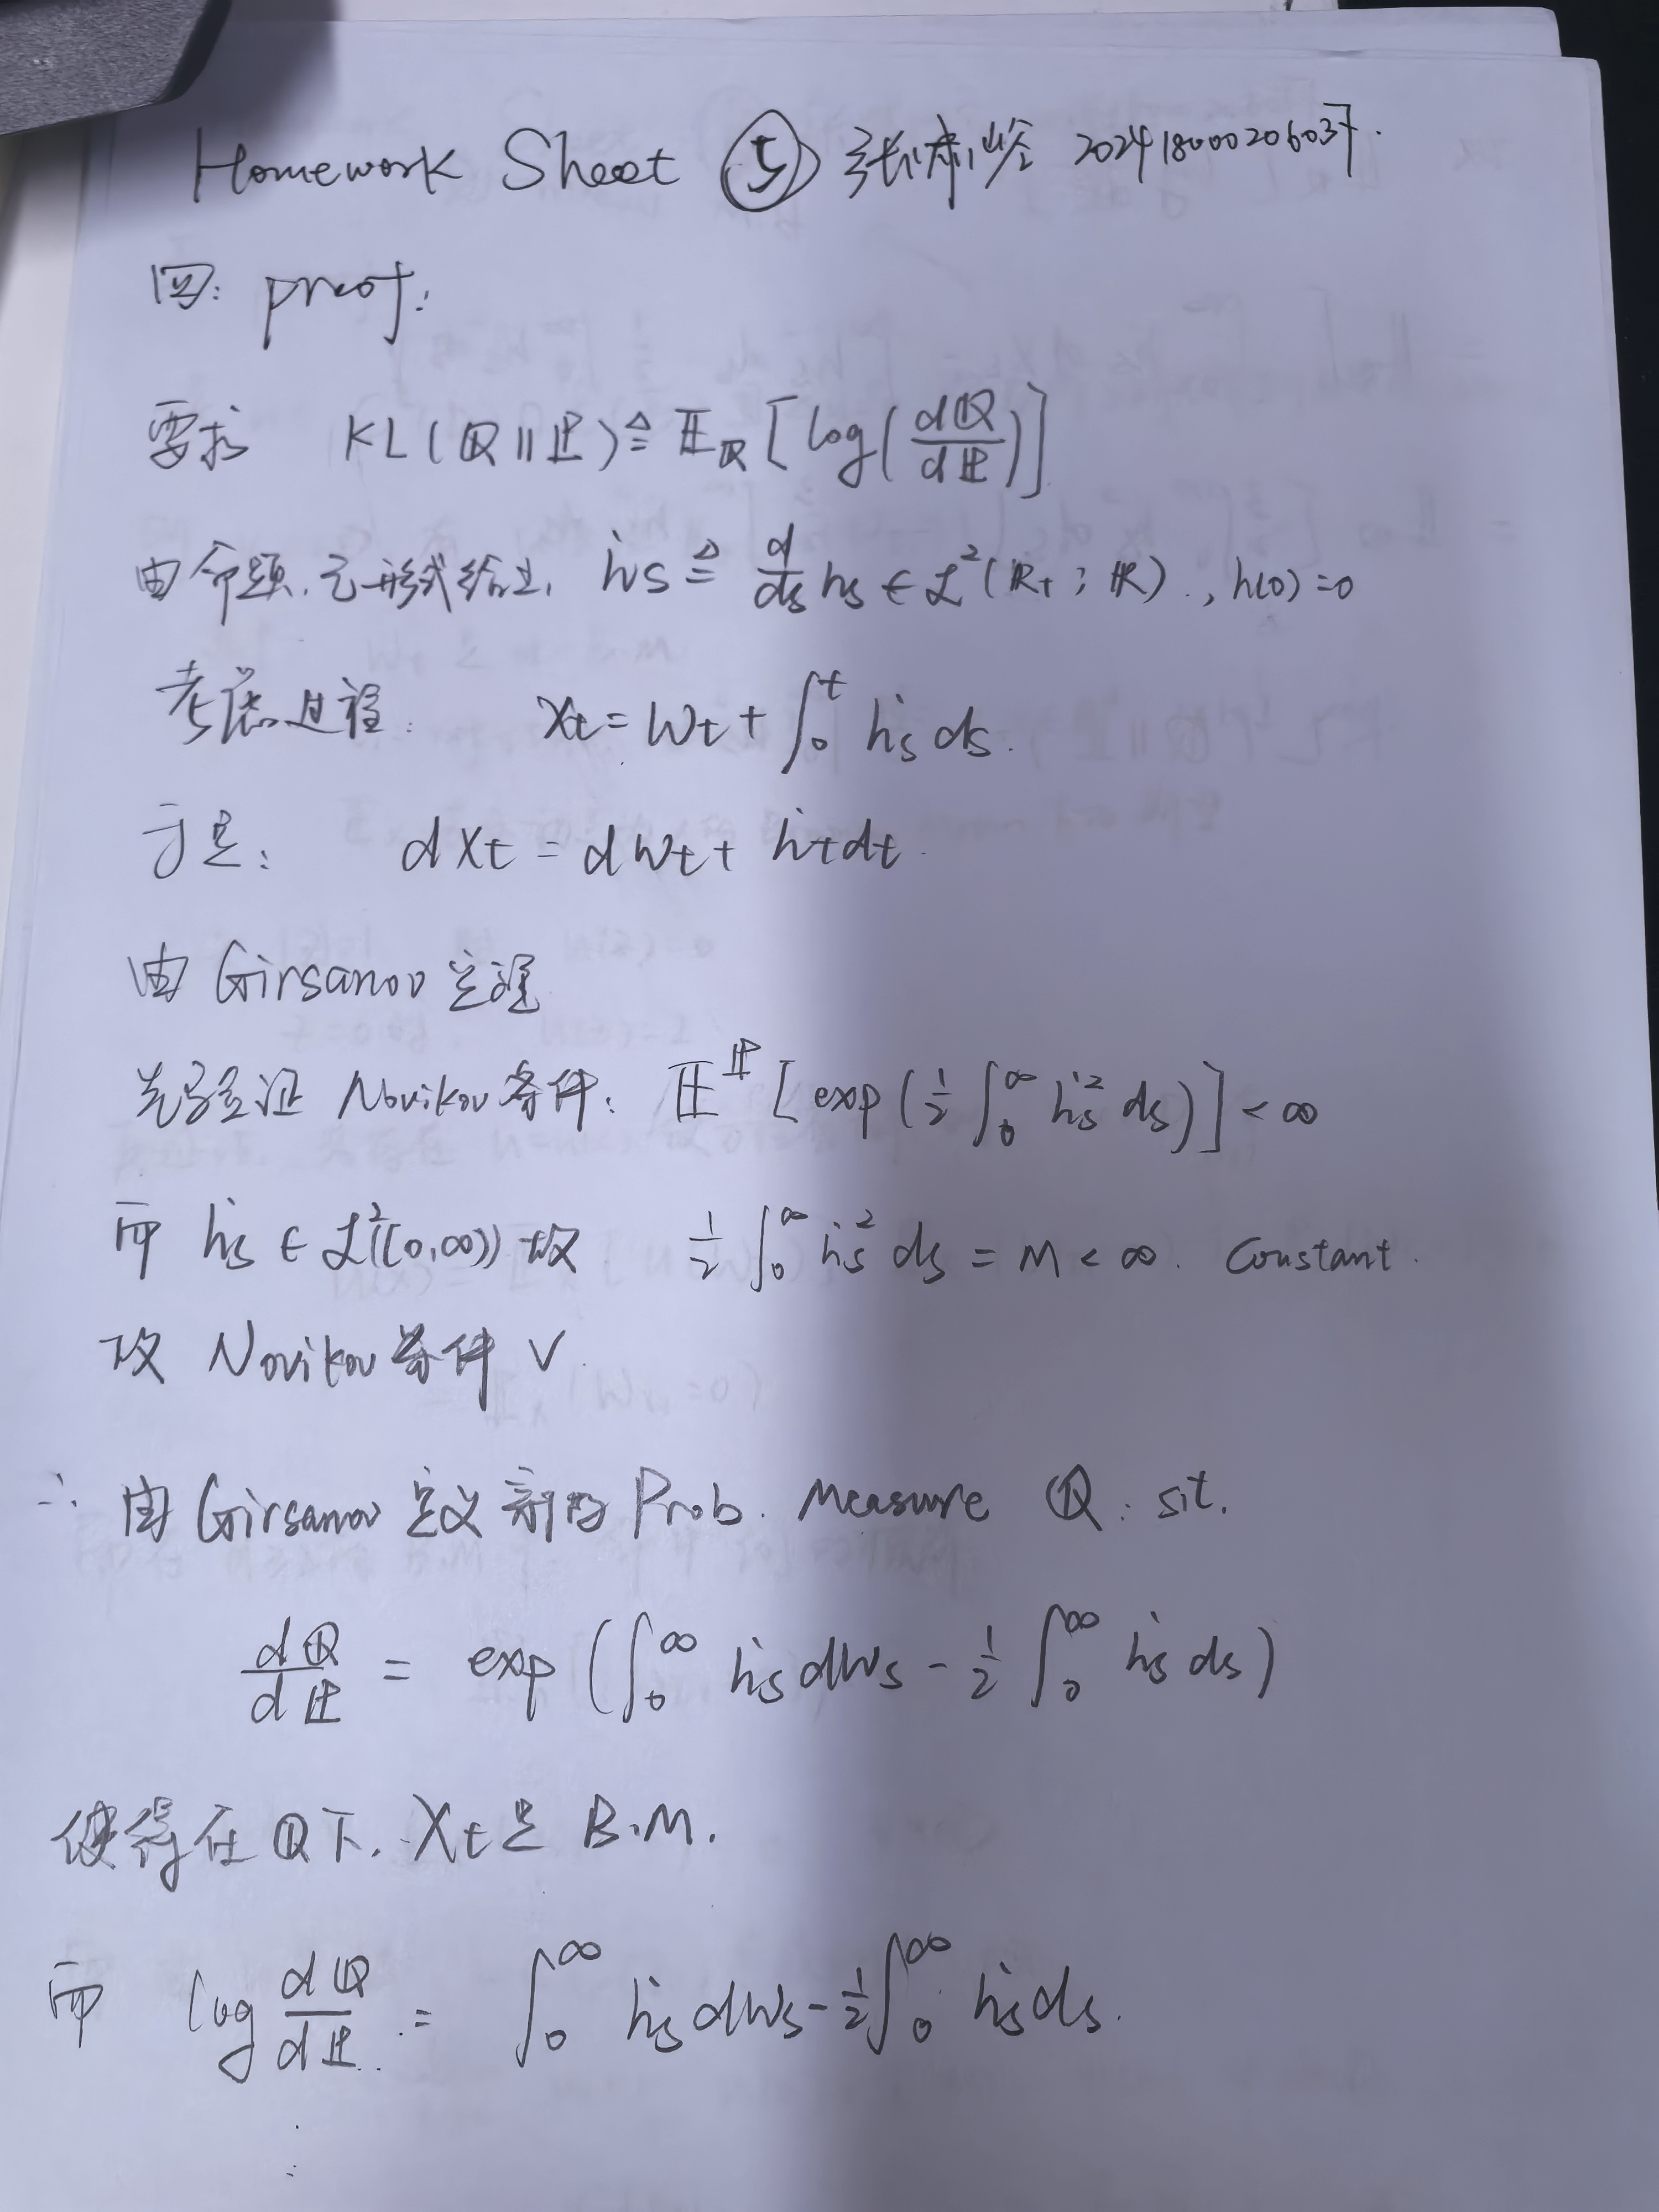 Homework Sheet ⑤ 张 202418000206037.
四: proof:
要求 KL(ℚ||ℙ) ≜ 𝔼_ℚ[log(dℚ/dℙ)]
由命题, 形式给出, ḣs ≜ d/ds hs ∈ ℒ²(ℝ+; ℝ), h(0)=0
考虑过程: Xt = Wt + ∫₀ᵗ ḣs ds.
于是: dXt = dWt + ḣt dt
由 Girsanov 定理
先验证 Novikov 条件: 𝔼^ℙ[exp(½∫₀^∞ ḣs² ds)] < ∞
而 ḣs ∈ ℒ²([0,∞)) 故 ½∫₀^∞ ḣs² ds = M < ∞. Constant.
故 Novikov 条件 √
∴ 由 Girsanov 定义新的 Prob. Measure ℚ: s.t.
dℚ/dℙ = exp(∫₀^∞ ḣs dWs - ½∫₀^∞ ḣs ds)
使得在 ℚ 下, Xt 是 B.M.
而 log dℚ/dℙ = ∫₀^∞ ḣs dWs - ½∫₀^∞ ḣs ds.